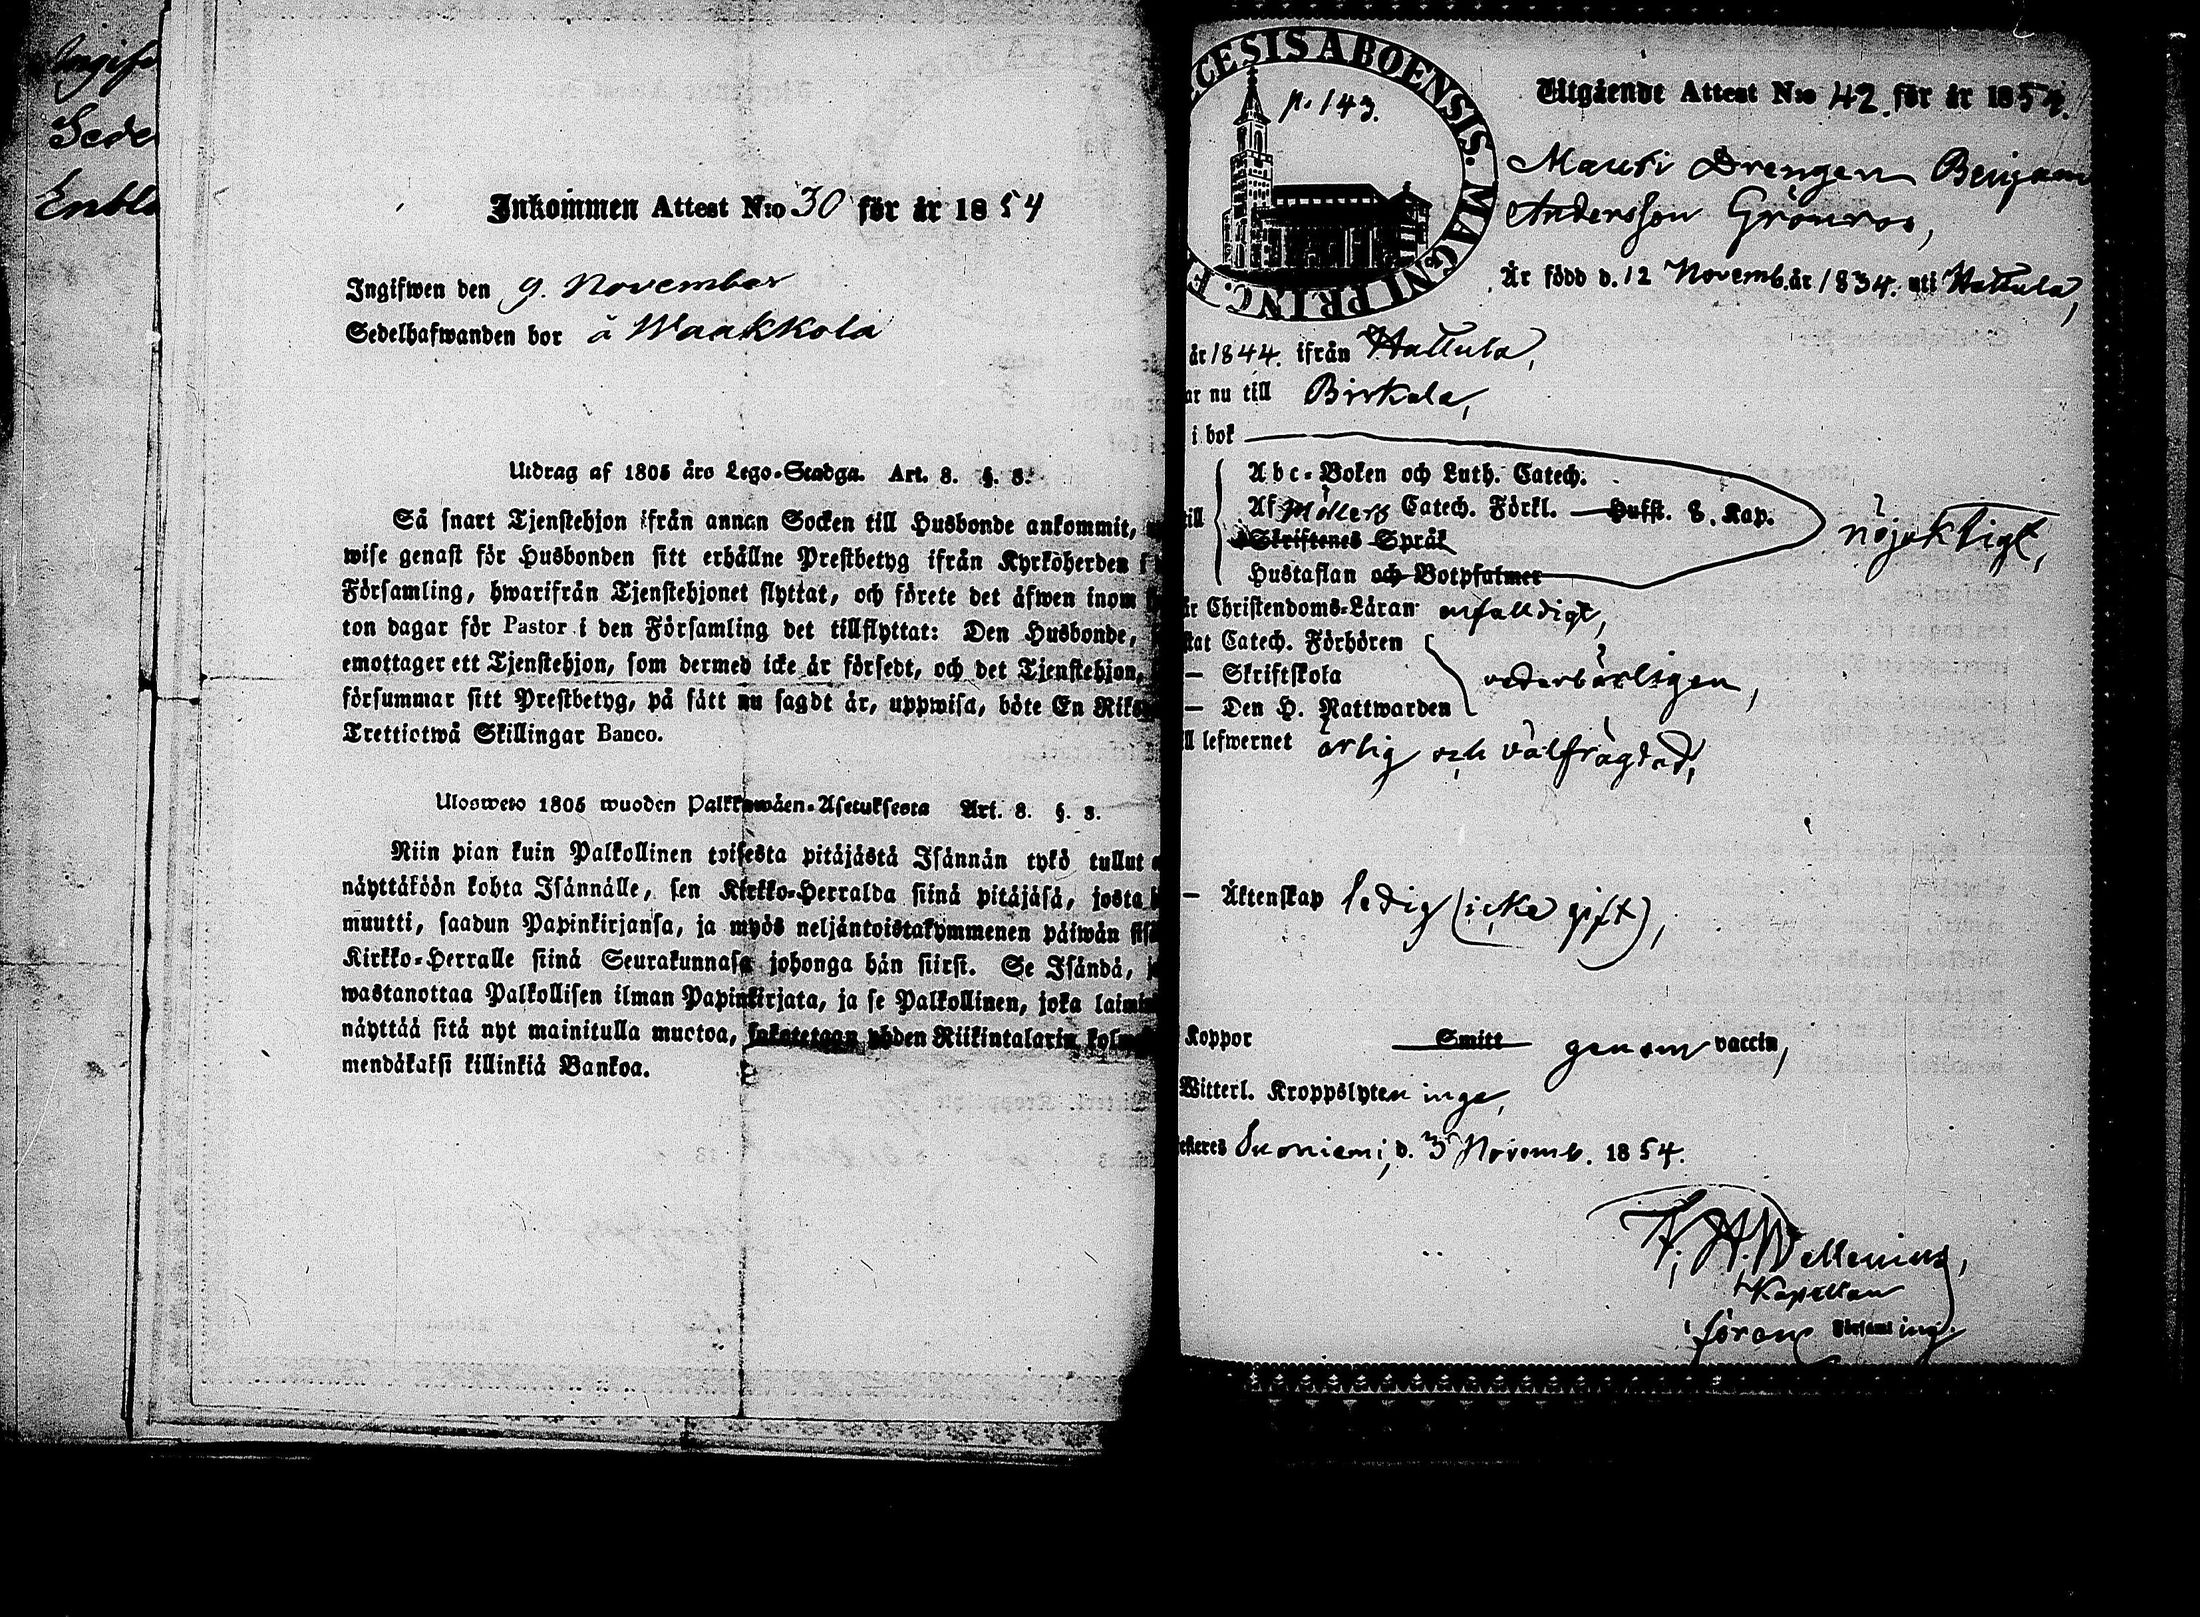 Inkommen Attest N:o 30 för år 1854
Ingifwen den 9. November
Sedelhafwanden bor å Waakkola
Utdrag af 1805 års Lego-Stadga. Art. 8. §. 3.
Så snart Tjenstehjon ifrån annan Socken till Husbonde ankommit,
wise genast för Husbonden sitt erhållne Prestbetyg ifrån Kyrkoherden i
Församling, hwarifrån Tjenstehjonet flyttat, och förete det äfwen inom
ton dagar för Pastor i den Församling det tillflyttat: Den Husbonde,
emottager ett Tjenstehjon, som dermed icke är försedt, och det Tjenstehjon,
försummar sitt Prestbetyg, på sätt nu sagdt är, uppwisa, böte En Riks
Trettiotwå Skillingar Banco.
Ulosweto 1805 wuoden Palkkawäen-Asetuksesta Art. 8. §. 3.
Niin pian kuin Palkollinen toisesta pitäjästä Isännän tykö tullut
näyttäköön kohta Isännälle, sen Kirkko-Herralda siinä pitäjäsä, josta
muutti, saadun Papinkirjansa, ja myös neljäntoistakymmenen päiwän sisä
Kirkko-Herralle siinä Seurakunnasa johonga hän siirsi. Se Isändä,
wastanottaa Palkollisen ilman Papinkirjata, ja se Palkollinen, joka laimin
näyttää sitä nyt mainitulla muotoa, sakotetaan yhden Riikintalarin kolme
mendäkaksi killinkiä Bankoa.
Ingif
Sede
Enbl
CESIS ABOENSIS. MAGNI PRINC. F
p. 143.
Utgående Attest N:o 42. för år 1854.
Drengen Benjam
Andersson Grönroos,
Är född d. 12 Novemb. år 1834. uti Hattula,
år 1844. ifrån Hattula,
ar nu till Birkala,
i bok
till
Abc-Boken och Luth. Catech.
Af Möllers Catech. Förkl. Hufst. 8. Kap.
Skriftenes Språk
Hustaflan och Botpsalmer
nöjaktigt,
är Christendoms-Läran enfaldigt,
stat Catech. Förhören
— Skriftskola
— Den H. Nattwarden
vederbörligen,
ll lefwernet ärlig och välfrägdad,
— Äktenskap ledig (icke gift),
Koppor Smitt genom vaccin,
Witterl. Kroppslyten inga,
esteres Suoniemi, d. 3 Novemb. 1854.
Kapellan
församling.